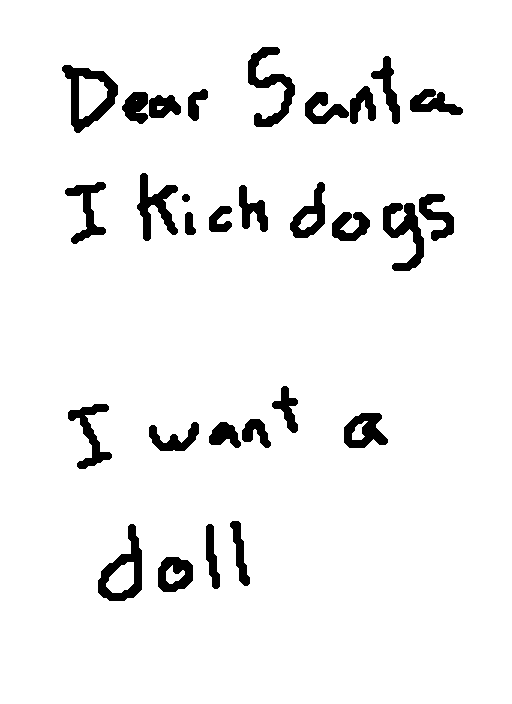 Dear Santa
I Kich dogs
I want a
doll